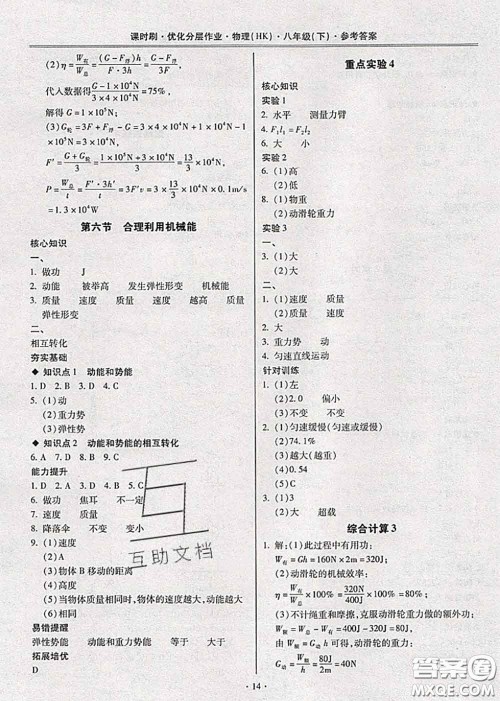 课时刷·优化分层作业·物理(HK)·八年级(下)·参考答案
(2)η=W有/W总=(G-F浮)h/(F·3h)=(G-F浮)/(3F)
代入数据得(G-1×10⁵N)/(3×4×10⁴N)=75%,
解得:G=1×10⁵N;
(3)G轮=3F+F浮-G=3×4×10⁴N+1×10⁴N-
1×10⁵N=3×10⁴N
F'=(G+G轮)/3=(1×10⁵N+3×10⁴N)/3=13/3×10⁴N,
P=W总/t=F'·3h'/t=3F'v=3×13/3×10⁴N×0.1m/s
=1.3×10⁴W
第六节 合理利用机械能
核心知识
一、
1. 做功 J
2. 动能 被举高 发生弹性形变 机械能
3. 质量 速度 质量 速度 越高 质量
弹性形变
二、
相互转化
夯实基础
◆ 知识点1 动能和势能
1. D 2. B 3. D 4. C
5. (1)动
(2)重力势
(3)弹性势
◆ 知识点2 动能和势能的相互转化
6. A 7. D 8. D 9. C
能力提升
1. D 2. A 3. D 4. B 5. C
6. 做功 焦耳 不一定
7. 速度 质量
8. 降落伞 不变 变小
9. (1)速度
(2)A
(3)物体B移动的距离
(4)高度
(5)当物体质量相同时,物体的速度越大,动能越大
(6)相同
易错提醒
弹性势能 动能和重力势能 等于 大于
拓展培优
D
重点实验4
核心知识
实验1
2. 水平 测量力臂
4. F₁l₁=F₂l₂
6. 大 小
实验2
6. (1)高
(2)低
8. (1)物重
(2)动滑轮重力
实验3
3. (1)大
(2)大
一、
1. (1)速度 质量
2. 大
3. 重力势 动
4. 匀速直线运动
针对训练
1. (1)左
(2)2.0 偏小
(3)不变 不变
2. (1)匀速缓慢(匀速或缓慢)
(2)74.1%
(3)越大
(4)0.54
(5)C
3. (1)质量 速度
(2)超载
综合计算3
1. 解:(1)此过程中有用功:
W有=Gh=160N×2m=320J
(2)动滑轮的机械效率:
η=W有/W总×100%=320N/400J×100%=80%
(3)不计绳重和摩擦,克服动滑轮重力做的额外功:
W额=W总-W有=400J-320J=80J
由W额=G动h可得,动滑轮的重力:
G动=W额/h=80J/2m=40N
互助文档
答案圈
MXQE.COM
·14·